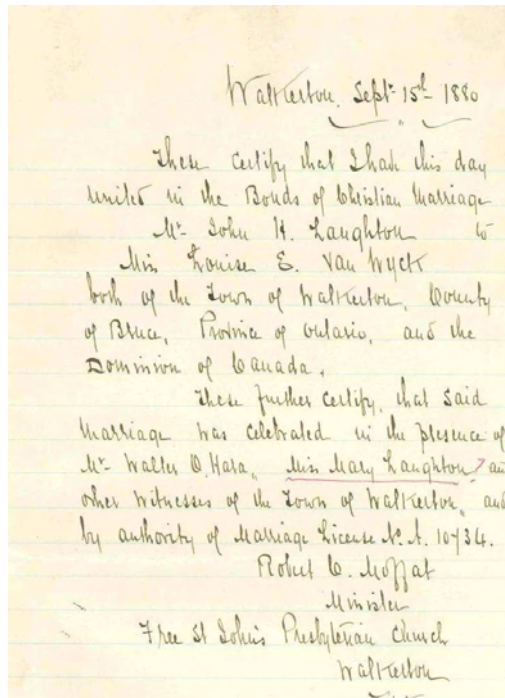 Walkerton, Sept. 15th 1880
These certify that I have this day
united in the Bonds of Christian Marriage
Mr. John H. Laughton to
Miss Louise E. Van Wyck
both of the Town of Walkerton, County
of Bruce, Province of Ontario, and the
Dominion of Canada.
These further certify, that said
Marriage was celebrated in the presence of
Mr. Walter O.Hara, Miss Mary Laughton, and
other witnesses of the Town of Walkerton, and
by authority of Marriage License No. A. 10734.
Robert C. Moffat
Minister
Free St John's Presbyterian Church
Walkerton